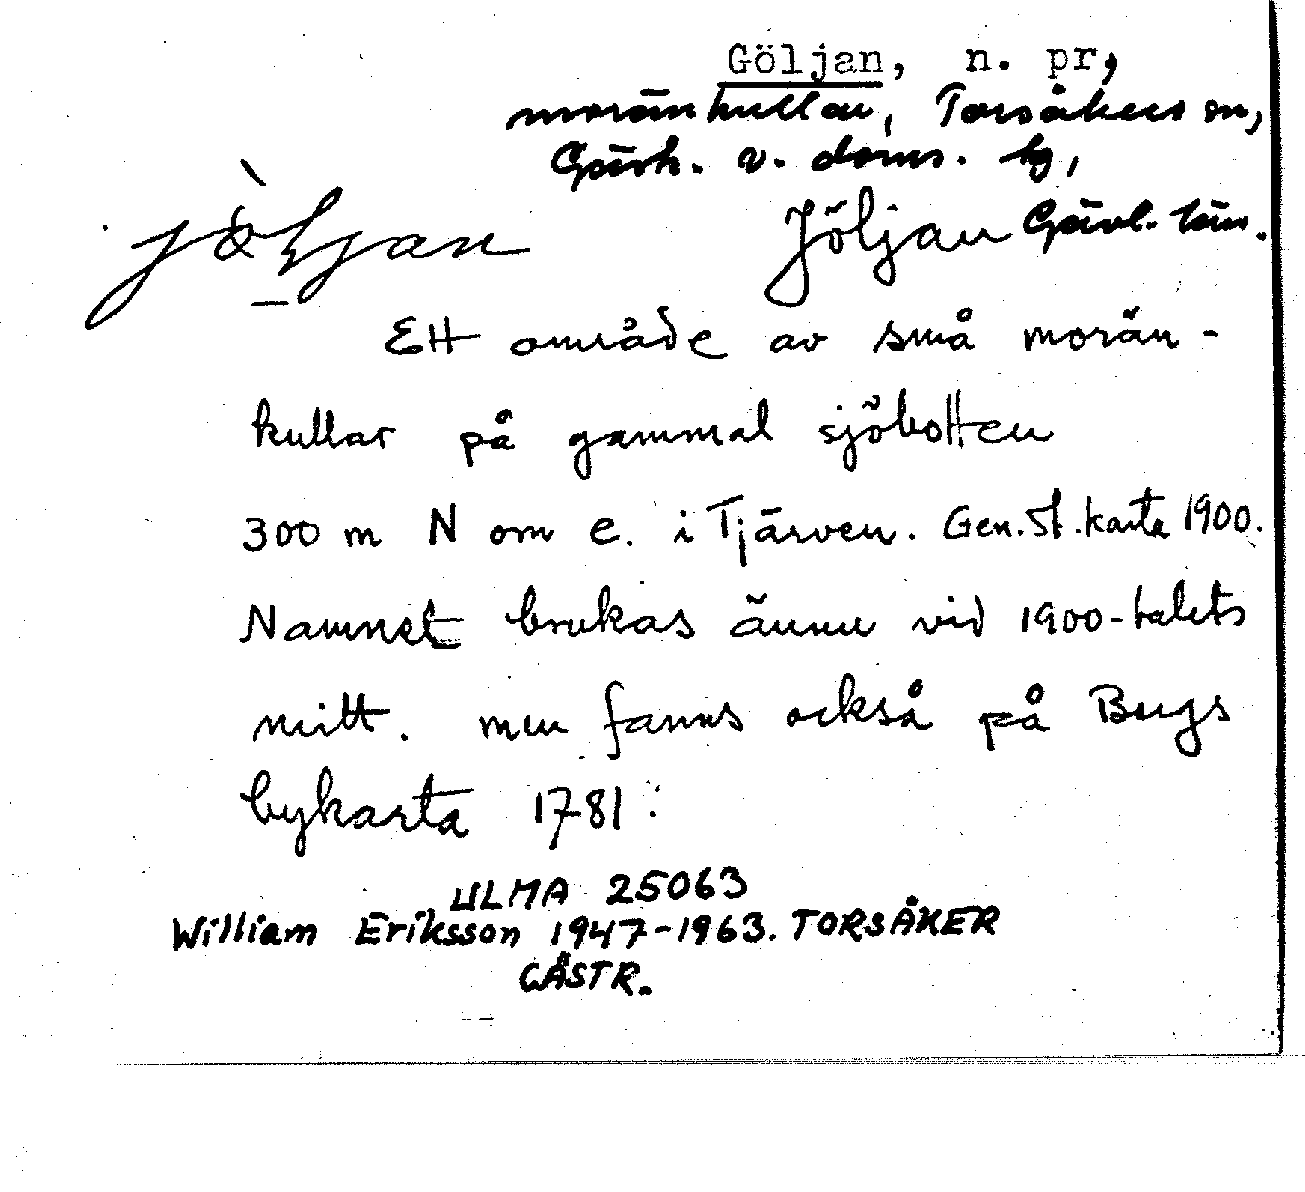 Göljan, n. pr,
moränkullar, Torsåkers sn,
Gästr. v. doms. tg,
jöljan
Jöljan Gävl. län.
Ett område av små morän-
kullar på gammal sjöbotten
300 m N om e. i Tjärven. Gen.St.karta 1900.
Namnet brukas ännu vid 1900-talets
mitt. men fanns också på Bergs
bykarta 1781.
ULMA 25063
William Eriksson 1947-1963. TORSÅKER
GÄSTR.